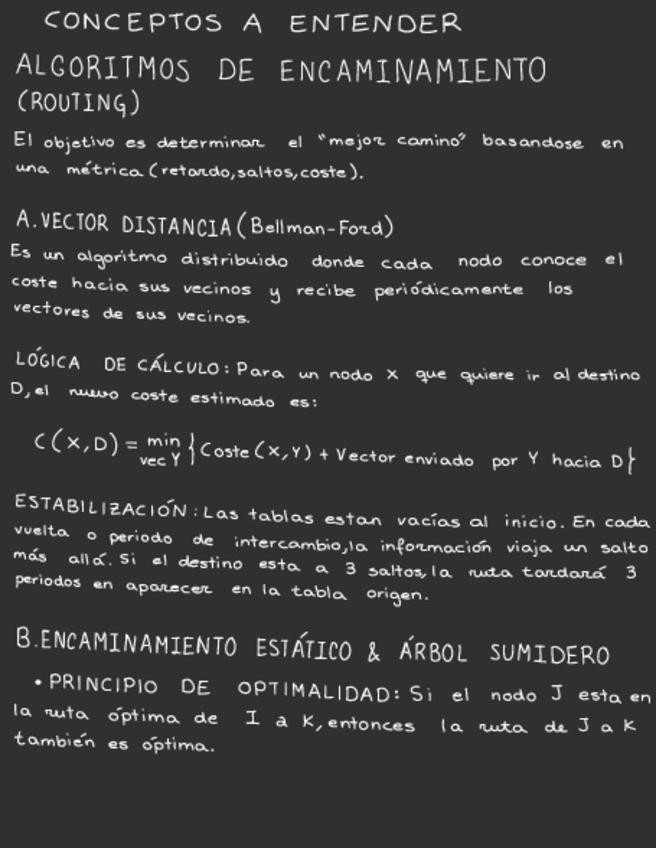 CONCEPTOS A ENTENDER
ALGORITMOS DE ENCAMINAMIENTO
(ROUTING)
El objetivo es determinar el "mejor camino" basandose en
una métrica (retardo, saltos, coste).
A. VECTOR DISTANCIA (Bellman-Ford)
Es un algoritmo distribuido donde cada nodo conoce el
coste hacia sus vecinos y recibe periódicamente los
vectores de sus vecinos.
LÓGICA DE CÁLCULO: Para un nodo X que quiere ir al destino
D, el nuevo coste estimado es:
C(X,D) = min {Coste (X,Y) + Vector enviado por Y hacia D}
vec Y
ESTABILIZACIÓN: Las tablas estan vacías al inicio. En cada
vuelta o periodo de intercambio, la información viaja un salto
más allá. Si el destino esta a 3 saltos, la ruta tardará 3
periodos en aparecer en la tabla origen.
B. ENCAMINAMIENTO ESTÁTICO & ÁRBOL SUMIDERO
• PRINCIPIO DE OPTIMALIDAD: Si el nodo J esta en
la ruta óptima de I a K, entonces la ruta de J a K
también es óptima.